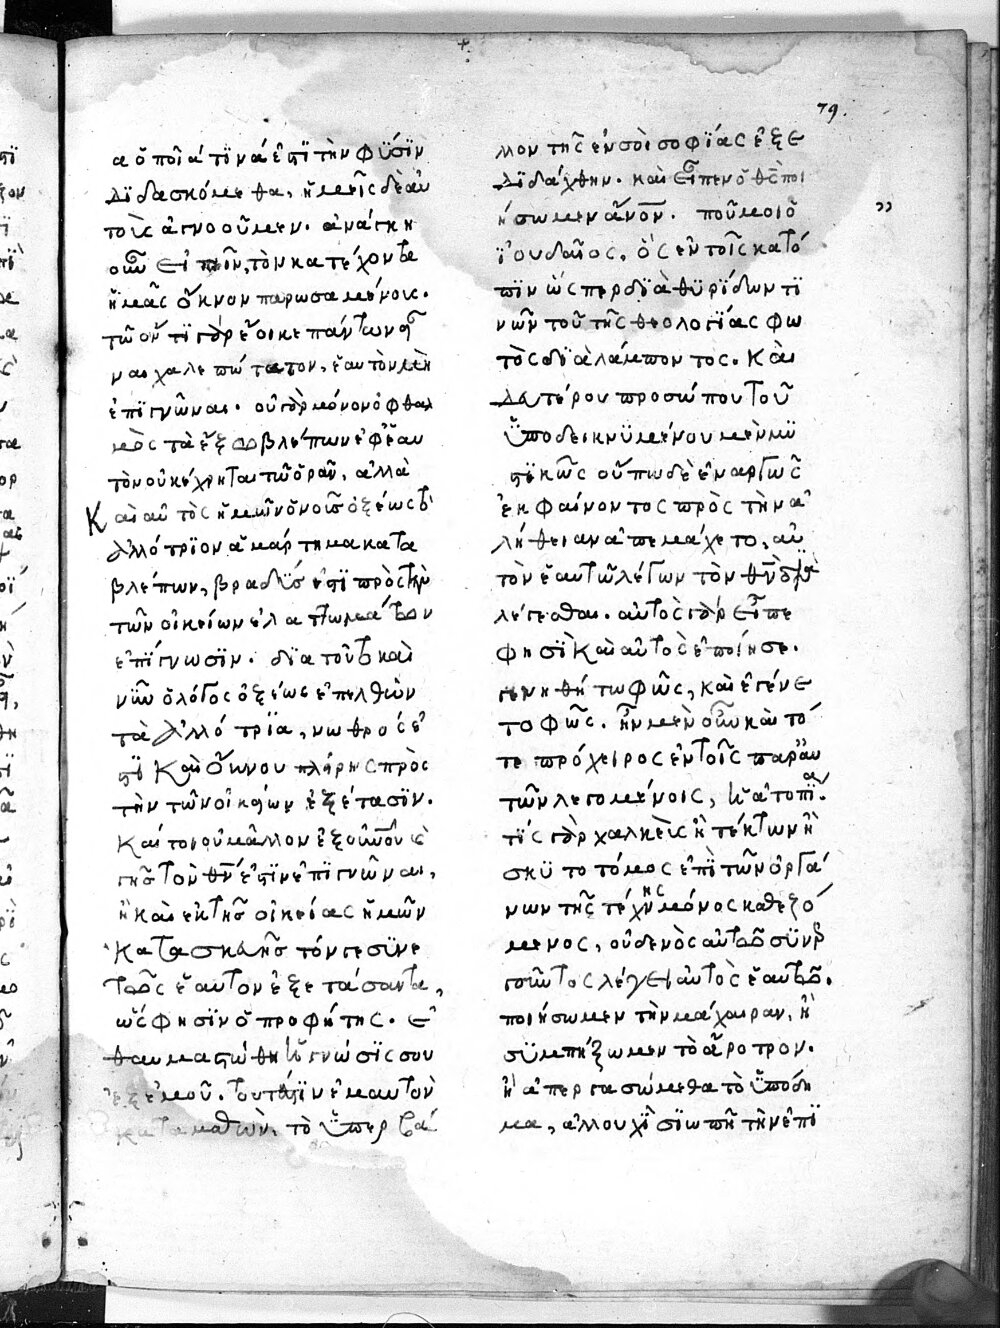 79.
α ὁποῖά τινα ἐπὶ τὴν φύσιν
διδασκόμεθα, ἡμεῖς δὲ αὐ
τοὺς ἀγνοοῦμεν. ἀνάγκη
οὖν εἰπεῖν, τὸν κατέχοντα
ἡμᾶς ὄκνον παρωσαμένοις.
τῶ ὄντι γὰρ ἔοικε πάντων εἶ
ναι χαλεπώτατον, ἑαυτὸν μὲν
ἐπιγνῶναι. οὐ γὰρ μόνον ὀφθαλ
μὸς τὰ ἔξω βλέπων ἐφ' ἑαυ
τὸν οὐ κέχρηται τῶ ὁρᾶν, ἀλλὰ
Καὶ αὐτὸς ἡμῶν ὁ νοῦς ὀξέως τὸ
ἀλλότριον ἁμάρτημα κατα
βλέπων, βραδύς ἐστι πρὸς τὴν
τῶν οἰκείων ἐλαττωμάτων
ἐπίγνωσιν. διὰ τοῦτο καὶ
νῦν ὁ λόγος ὀξέως ἐπελθὼν
τὰ ἀλλότρια, νωθρός ἐ
στι Καὶ ὄκνου πλήρης πρὸς
τὴν τῶν οἰκείων ἐξέτασιν.
Καίτοι οὐ μᾶλλον ἐξ οὐνοῦ καὶ
γῆς τὸν θν ἐστιν ἐπιγνῶναι,
ἢ καὶ ἐκ τῆς οἰκείας ἡμῶν
Κατασκευῆς τόν γε συνε
τῶς ἑαυτὸν ἐξετάσαντα,
ὥς φησιν ὁ προφήτης. ἐ
θαυμαστώθη ἡ γνῶσίς σου
ἐξ ἐμοῦ. τουτέστιν ἐμαυτὸν
καταμαθὼν, τὸ ὑπερβά
λ
μον τῆς ἐν σοὶ σοφίας ἐξε
διδάχθην. καὶ εἶπεν ὁ θς ποι
ήσωμεν ἄνον. ποῦ μοι ὁ
ἰουδαῖος, ὃς ἐν τοῖς κατό
πιν ὥσπερ διὰ θυρίδων τι
νῶν τοῦ τῆς θεολογίας φω
τὸς διαλάμποντος. Καὶ
δευτέρου προσώπου τοῦ
ὑποδεικνυμένου μὲν μυ
στικῶς οὔπω δὲ ἐναργῶς
ἐκφαίνοντος πρὸς τὴν ἀ
λήθειαν ἀπεμάχετο, αὐ
τὸν ἑαυτῶ λέγων τὸν θν δια
λέγεσθαι. αὐτὸς γὰρ εἶπε
φησὶ Καὶ αὐτὸς ἐποίησε.
γενηθήτω φῶς, καὶ ἐγένε
το φῶς. ἦν μὲν οὖν καὶ τό
τε πρόχειρος ἐν τοῖς παρ' αὐ
τῶν λεγομένοις, ἡ ἀτοπία.
τίς γὰρ χαλκεὺς ἢ τέκτων ἢ
σκυτοτόμος ἐπὶ τῶν ὀργά
νων τῆς τέχνης μόνος καθεζό
μενος, οὐδενὸς αὐτῶ συνερ
γοῦντος λέγει αὐτὸς ἑαυτῶ.
ποιήσωμεν τὴν μάχαιραν, ἢ
συμπήξωμεν τὸ ἄροτρον.
ἢ ἀπεργασώμεθα τὸ ὑπόδη
μα, ἀλλ' οὐχὶ σιωπῆ τὴν ἐπι